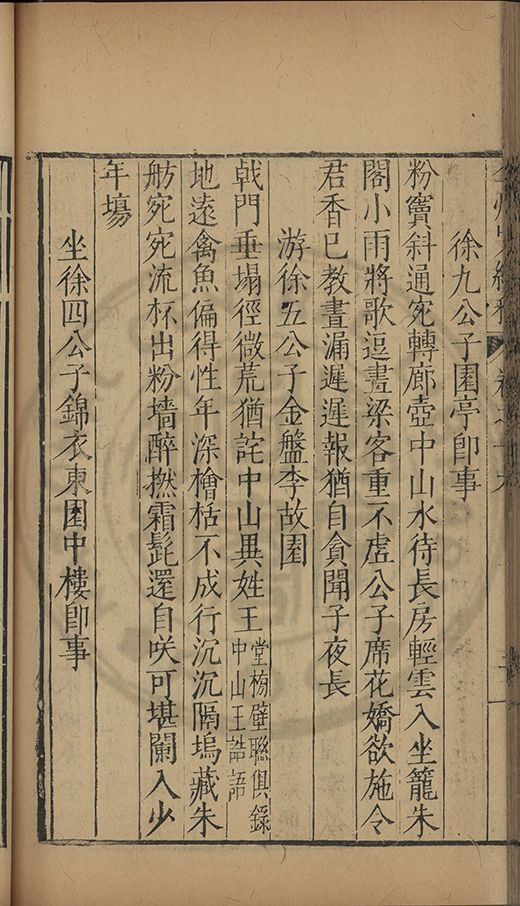 徐九公子園亭即事
粉竇斜通宛轉廊壺中山水待長房輕雲入坐籠朱
閣小雨將歌逗畫梁客重不虛公子席花嬌欲施令
君香已教晝漏遲遲報猶自貪聞子夜長
游徐五公子金盤李故園
戟門垂塌徑微荒猶詫中山異姓王堂榜壁聯俱錄中山王誥語
地遠禽魚偏得性年深檜栝不成行沉沉隔塢藏朱
舫宛宛流杯出粉墻醉撚霜髭還自咲可堪闌入少
年塲
坐徐四公子錦衣東園中樓即事